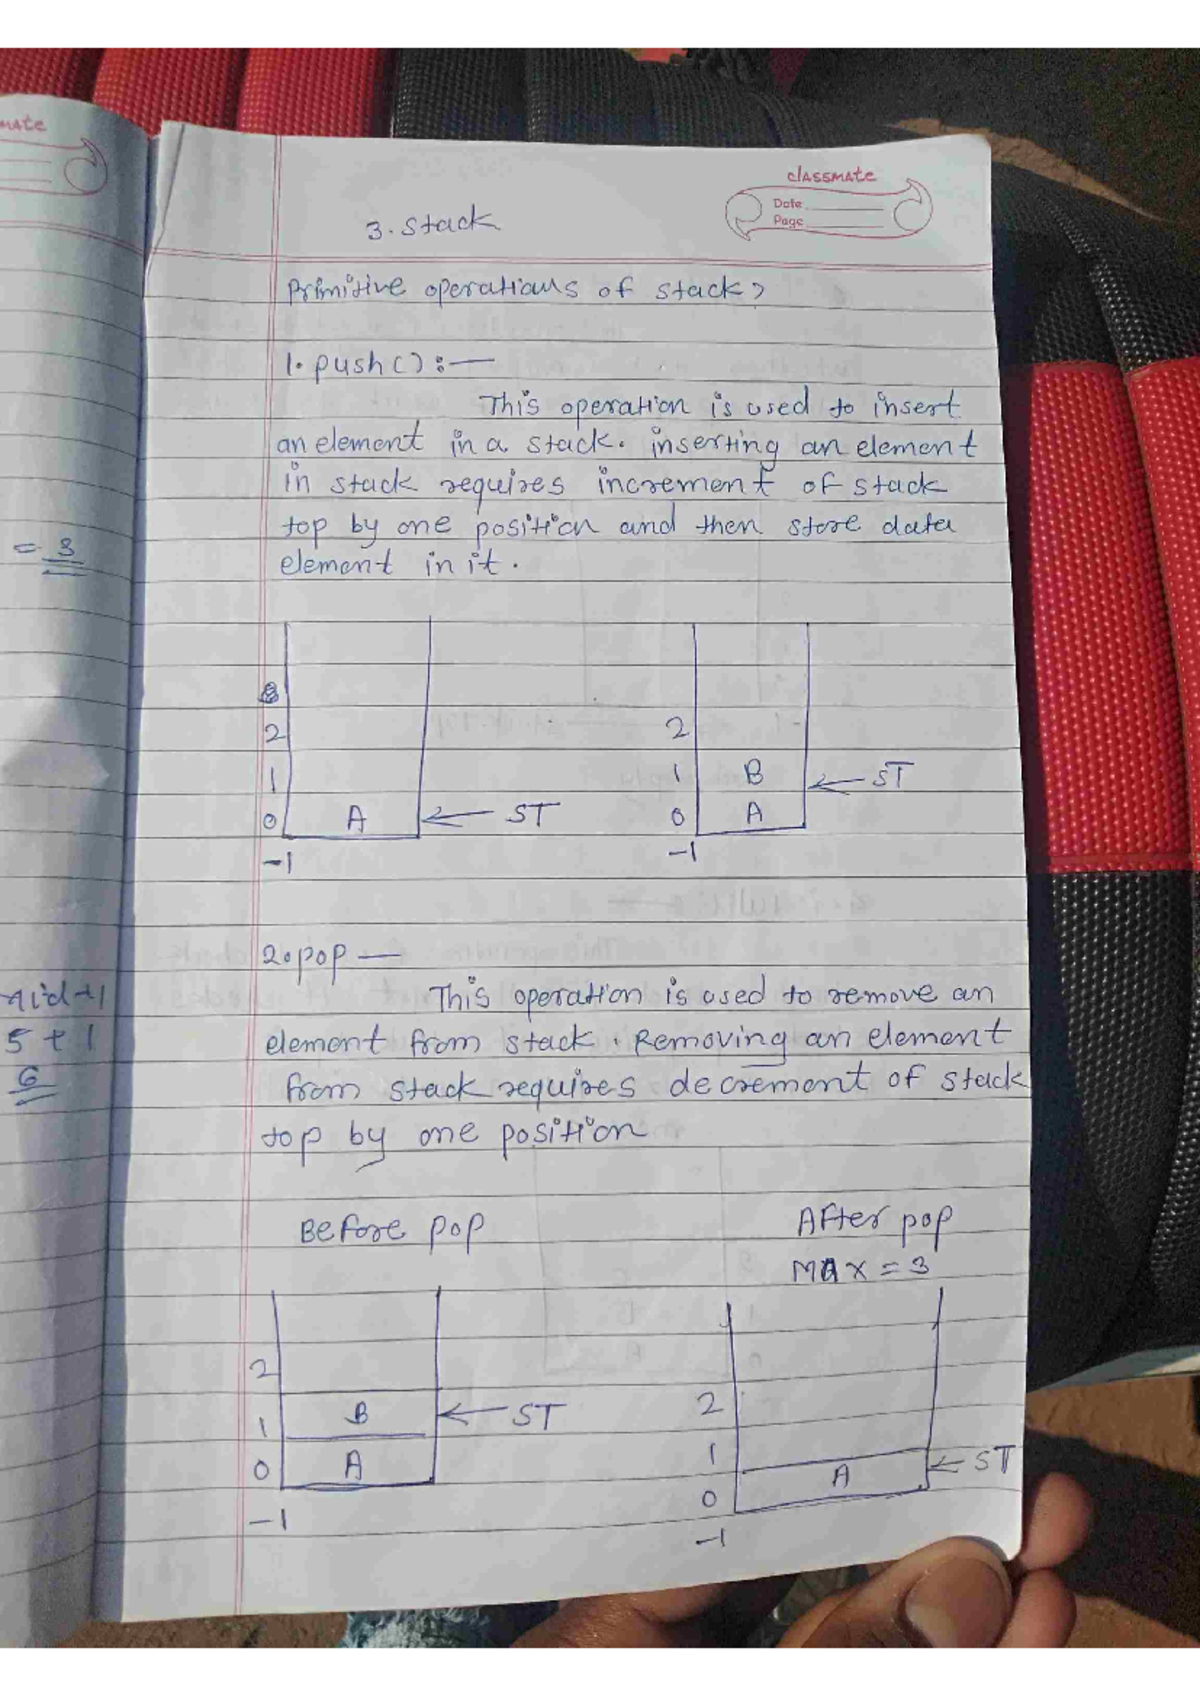 mate
classmate
Date
Page
3. Stack
Primitive operations of stack?
1. push():—
This operation is used to insert
an element in a stack. inserting an element
in stack requires increment of stack
top by one position and then store data
element in it.
= 3
2
1
0 A ← ST
-1
2
1 B ← ST
0 A
-1
2. pop —
This operation is used to remove an
element from stack. Removing an element
from stack requires decrement of stack
top by one position
mid+1
5+1
6
Before pop
2
1 B ← ST
0 A
-1
After pop
MAX = 3
2
1
0 A ← ST
-1